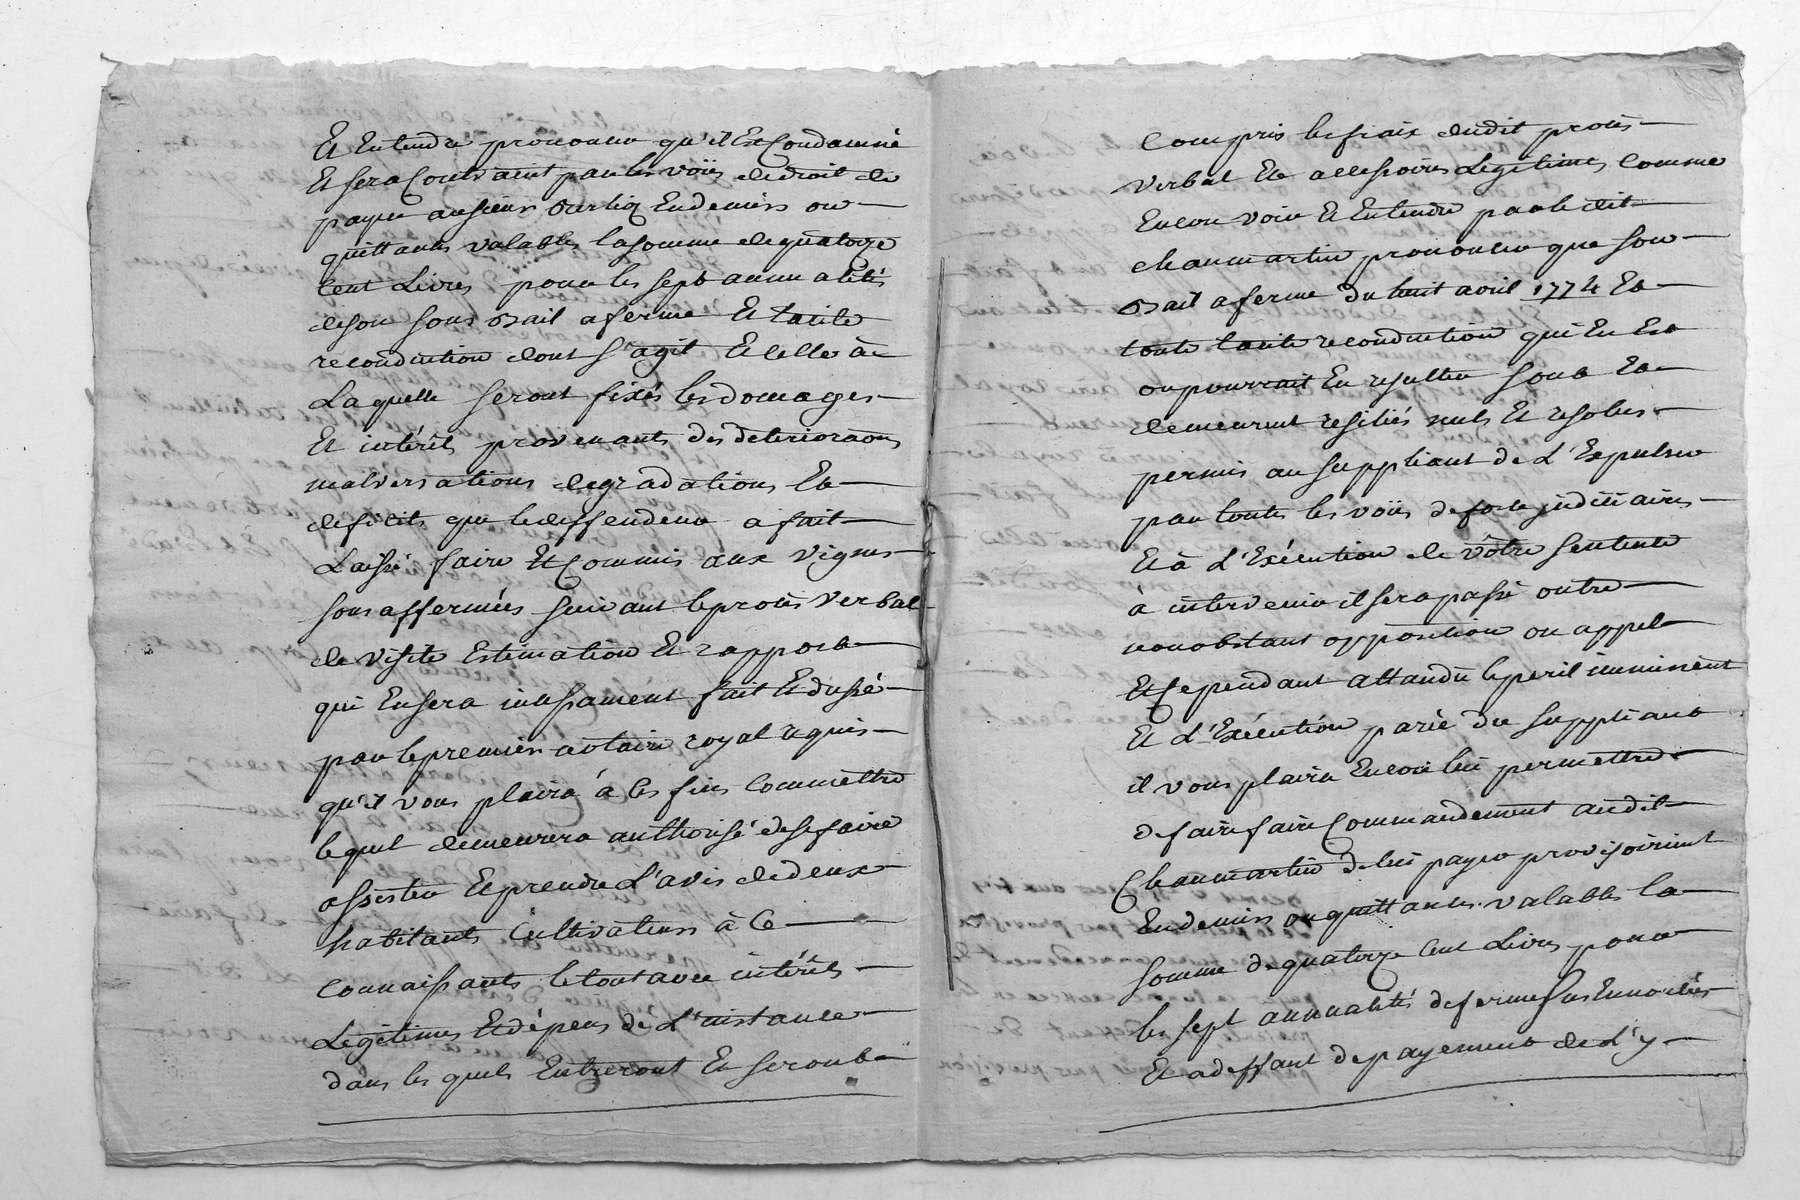 Et Entendre prononcer qu'il Est Condamné
Et sera Contraint par les voïes de droit de
payer au sieur En deniers ou
quittances valables la somme de quatorze
Cent Livres pour les sept annualités
de son sous Bail a ferme Et tacite
reconduction dont s'agit Et celle à
Laquelle seront fixés les domages
Et intérêts provenants des deteriora͠ons
malversations degradations Et
deficits que le deffendeur a fait
Laissé faire Et Commis aux vignes
sous affermées suivant le procès verbal
de visite Estimation Et rapport
qui En sera incessament fait Et dressé
par le premier notaire royal requis
qu'il vous plaira à ces fins Commettre
lequel demeurera authorisé de se faire
assister Et prendre L'avis de deux
habitants Cultivateurs à Ce
Connaissants le tout avec intérêts
Légitimes Et dépens de L'instance
dans les quels Entreront Et seront
Compris les fraix dudit procès
verbal Et accessoires Légitimes Comme
Encor voir Et Entendre par le dit
chaumartin prononcer que son
Bail a ferme du huit avril 1774 Et
toute tacite reconduction qui En Est
ou pourrait En resulter sont Et
demeurent resiliés nuls Et resolus
permis au suppliant de L'Expulser
par toutes les voïes de force judiciaires
Et à L'Exécution de vôtre sentence
à intervenir il sera passé outre
nonobstant opposition ou appel
Et Cependant attandu le peril imminent
Et L'Exécution parée du suppliant
il vous plaira Encore lui permettre
de faire faire Commandement audit
Chaumartin de lui payer provisoirement
En deniers ou quittances valables la
somme de quatorze Cent Livres pour
les sept annualités de ferme sus Enoncées
Et a deffaut de payement de L'y